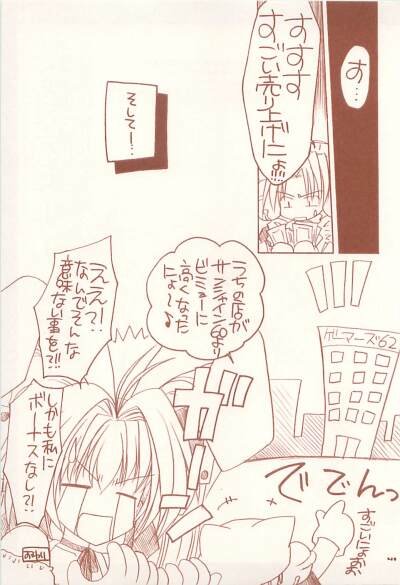 す…
すすす
すごい売り上げにょ!!!
そして…
ゲマーズ62
うちの店が
サンシャイン60より
ビミョーに
高くなった
にょ〜♪
ででんっ
すごいにょお
ガーーン
ええっ?!
なんでそんな
意味ない事を?!!
しかも私に
ボーナスなし?!
おわり